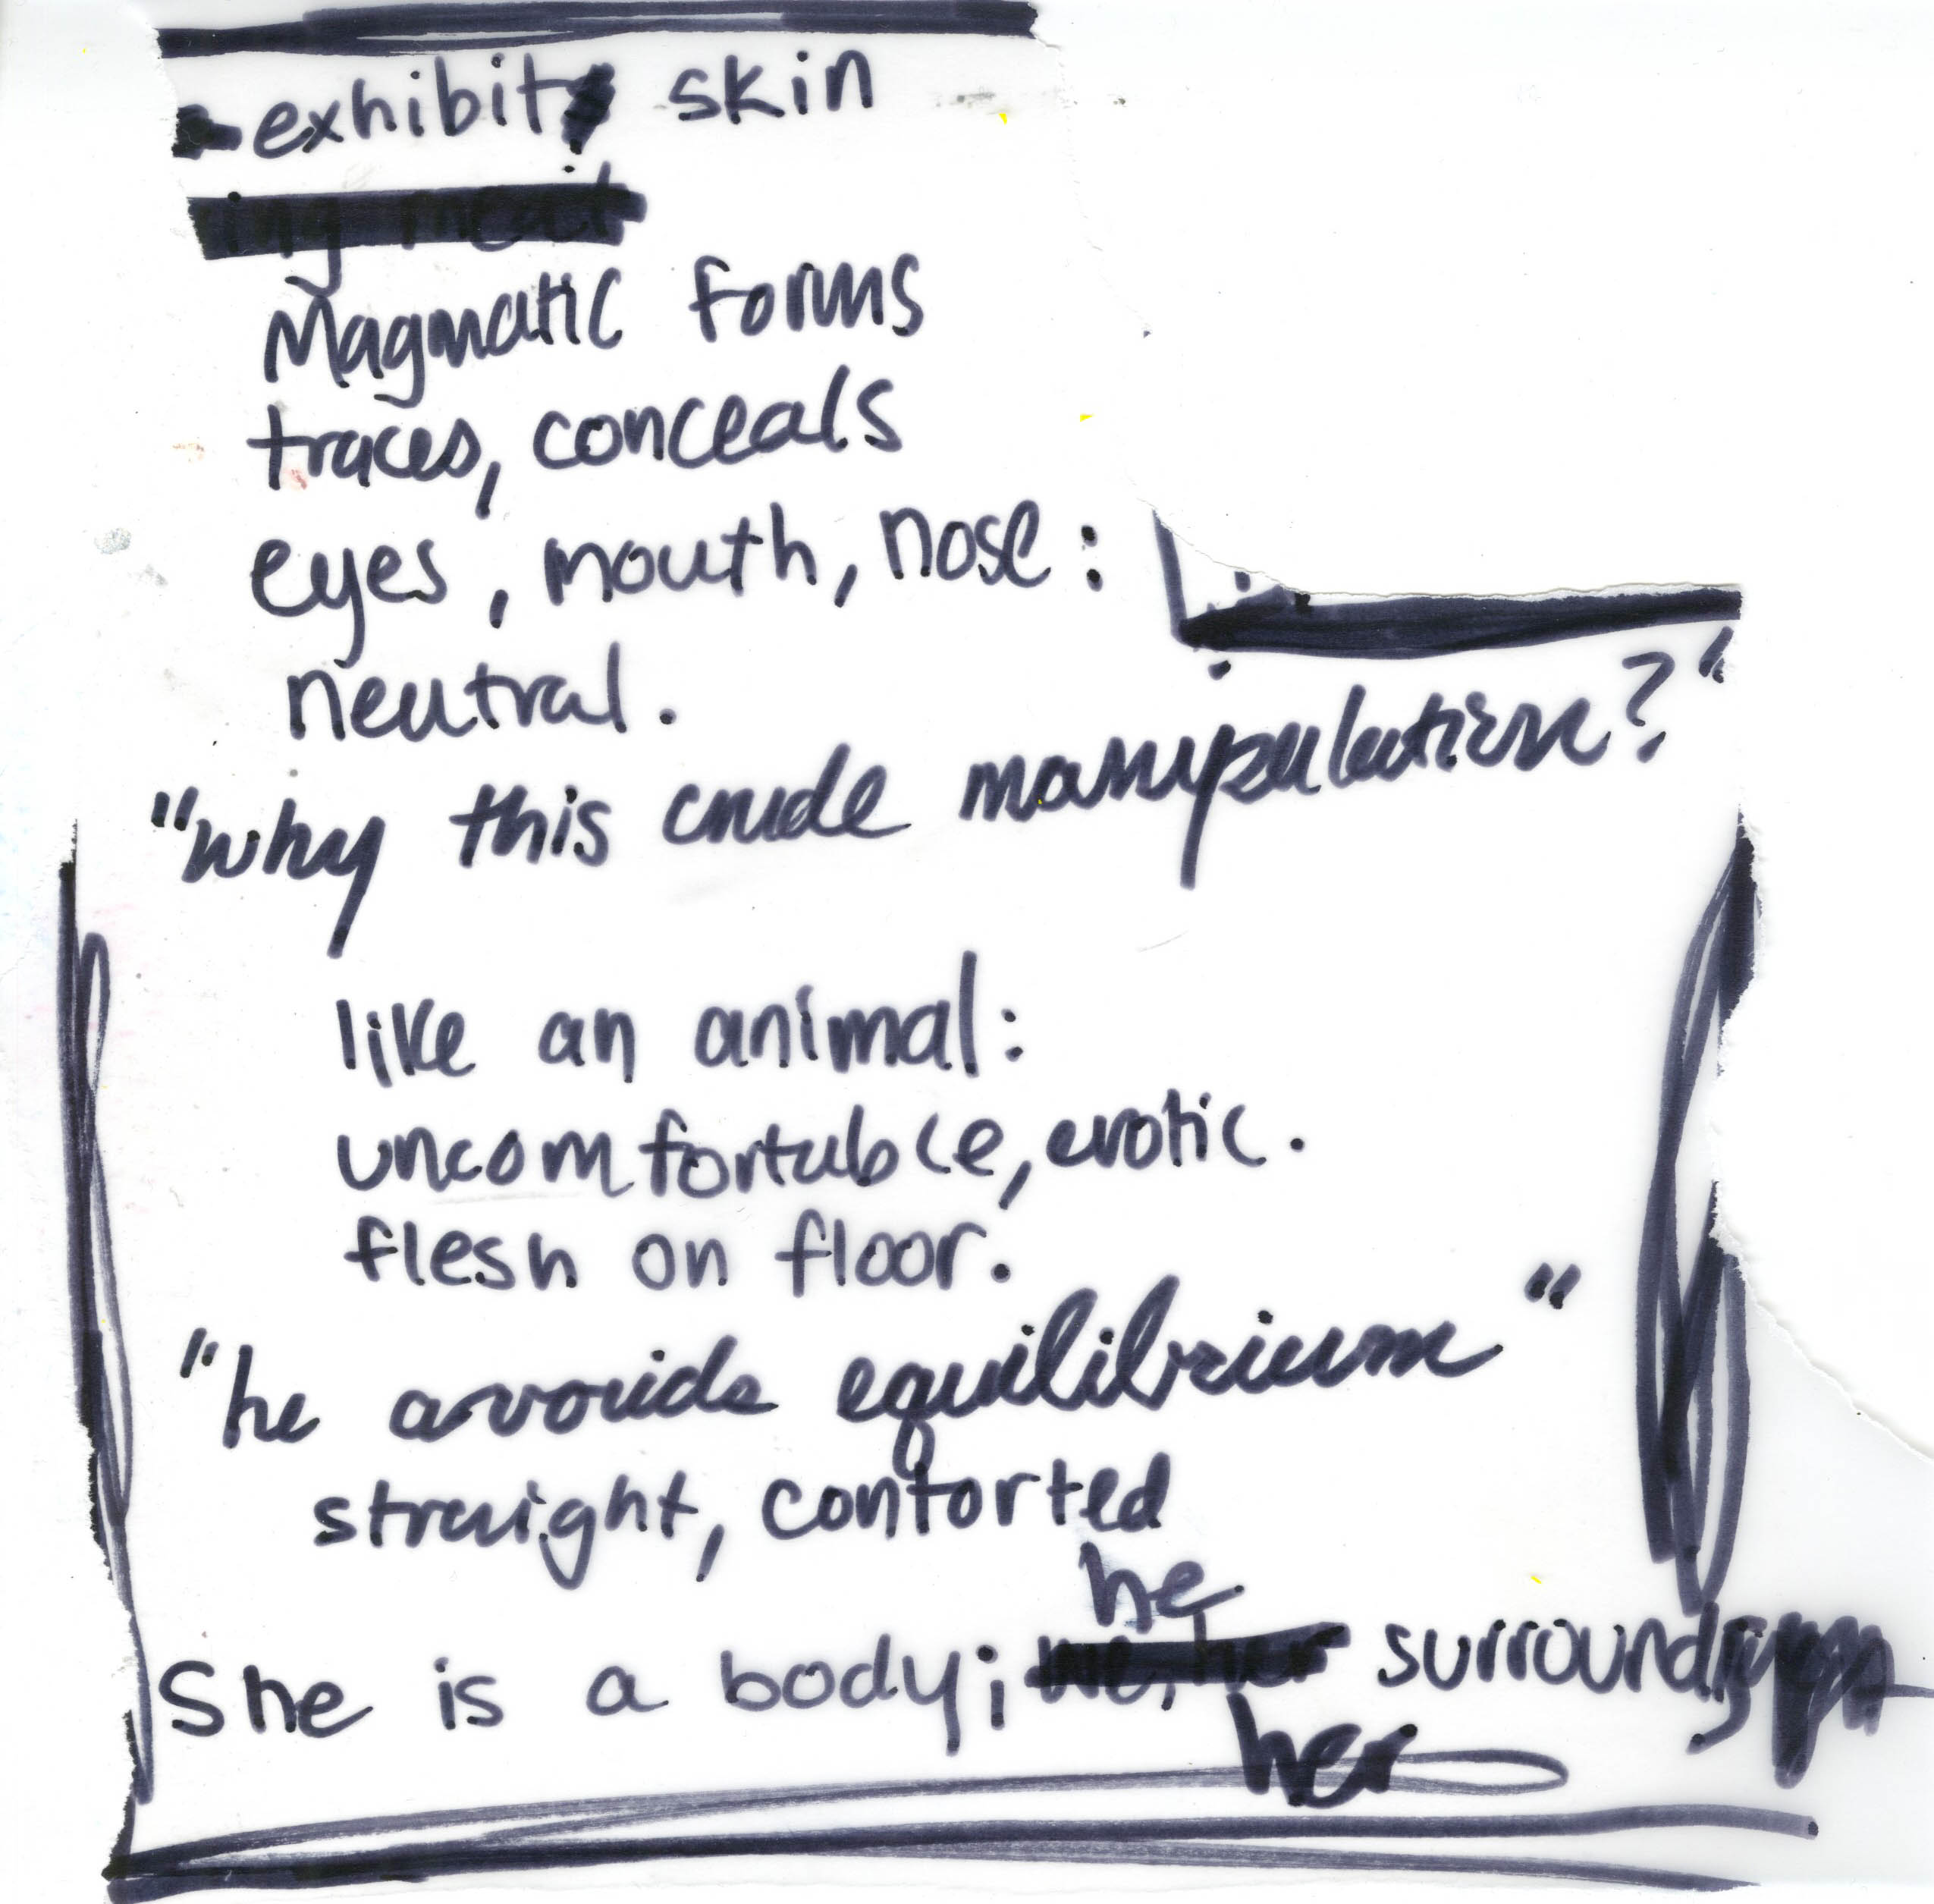 exhibit skin
Magmatic forms
traces, conceals
eyes, mouth, nose:
neutral.
"why this crude manipulation?"
like an animal:
uncomfortable, erotic.
flesh on floor.
"he avoids equilibrium"
straight, contorted
he
She is a body; surrounds
her